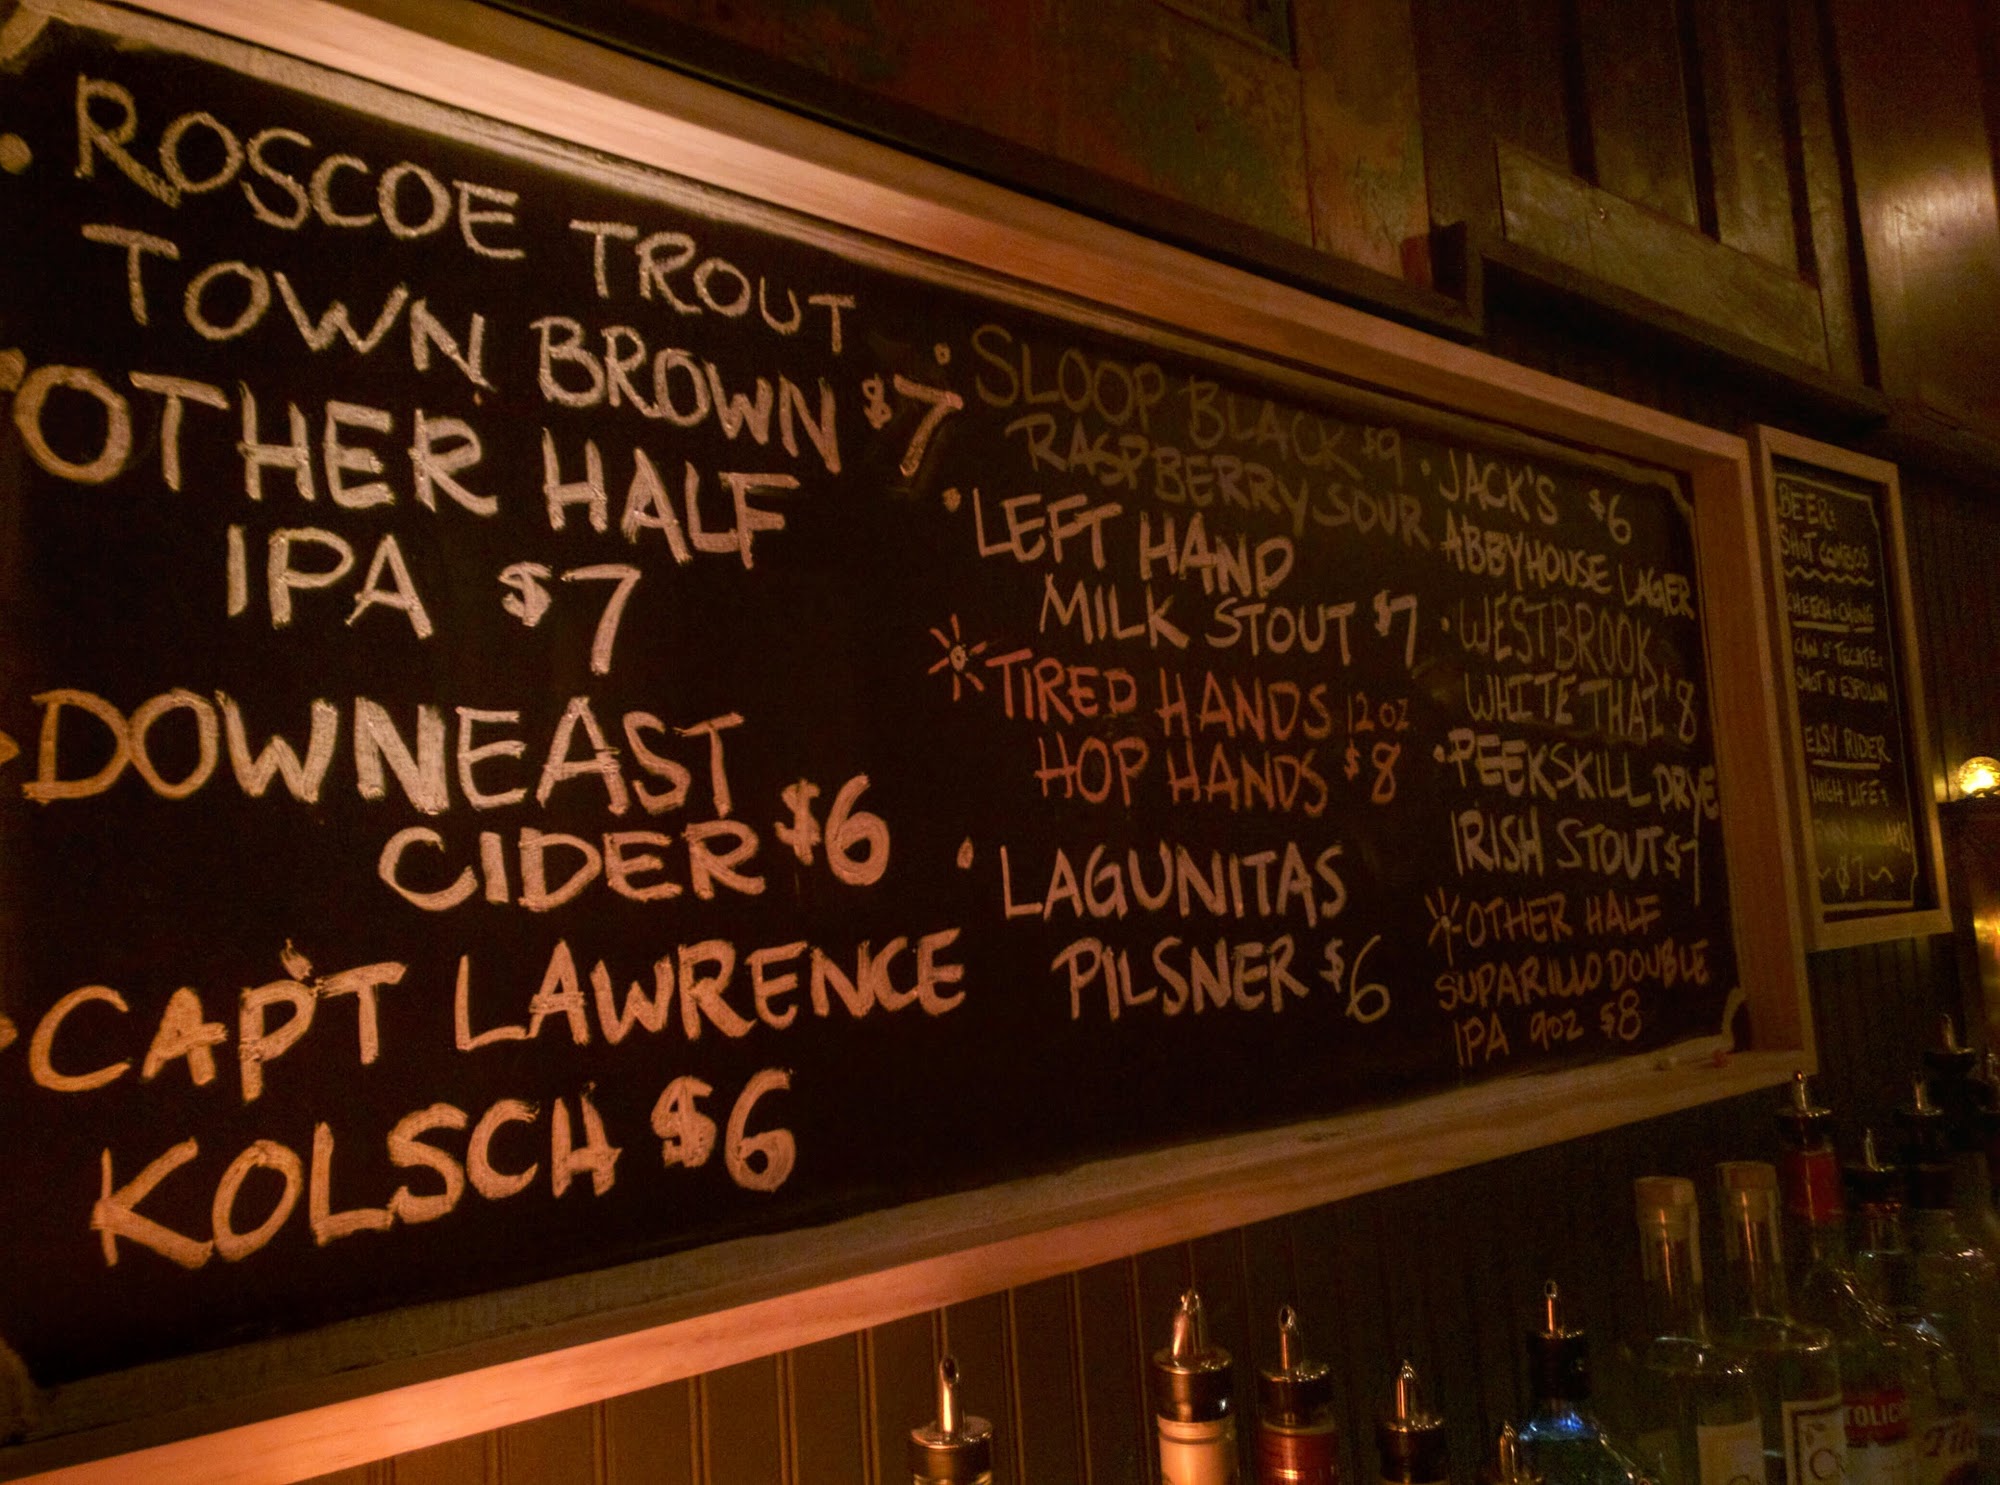 • ROSCOE TROUT
TOWN BROWN $7
• OTHER HALF
IPA $7
• DOWNEAST
CIDER $6
• CAP'T LAWRENCE
KOLSCH $6
• SLOOP BLACK $9
RASPBERRY SOUR
• LEFT HAND
MILK STOUT $7
TIRED HANDS 12 OZ
HOP HANDS $8
• LAGUNITAS
PILSNER $6
• JACK'S $6
ABBYHOUSE LAGER
• WESTBROOK
WHITE THAI $8
• PEEKSKILL DRYE
IRISH STOUT $7
OTHER HALF
SUPARILLO DOUBLE
IPA 9OZ $8
BEER &
SHOT COMBOS
CHEECH & CHONG
CAN O' TECATE &
SHOT O' ESPOLON
EASY RIDER
HIGH LIFE &
~ $7 ~